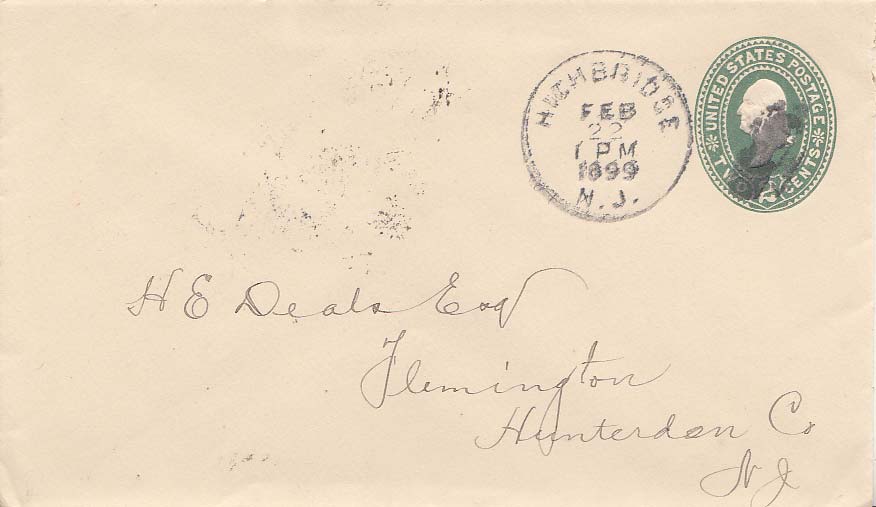 HIGHBRIDGE
FEB
22
1 PM
1899
N.J.
UNITED STATES POSTAGE
TWO CENTS
2
H E Deats Esq
Flemington
Hunterdon Co
N J